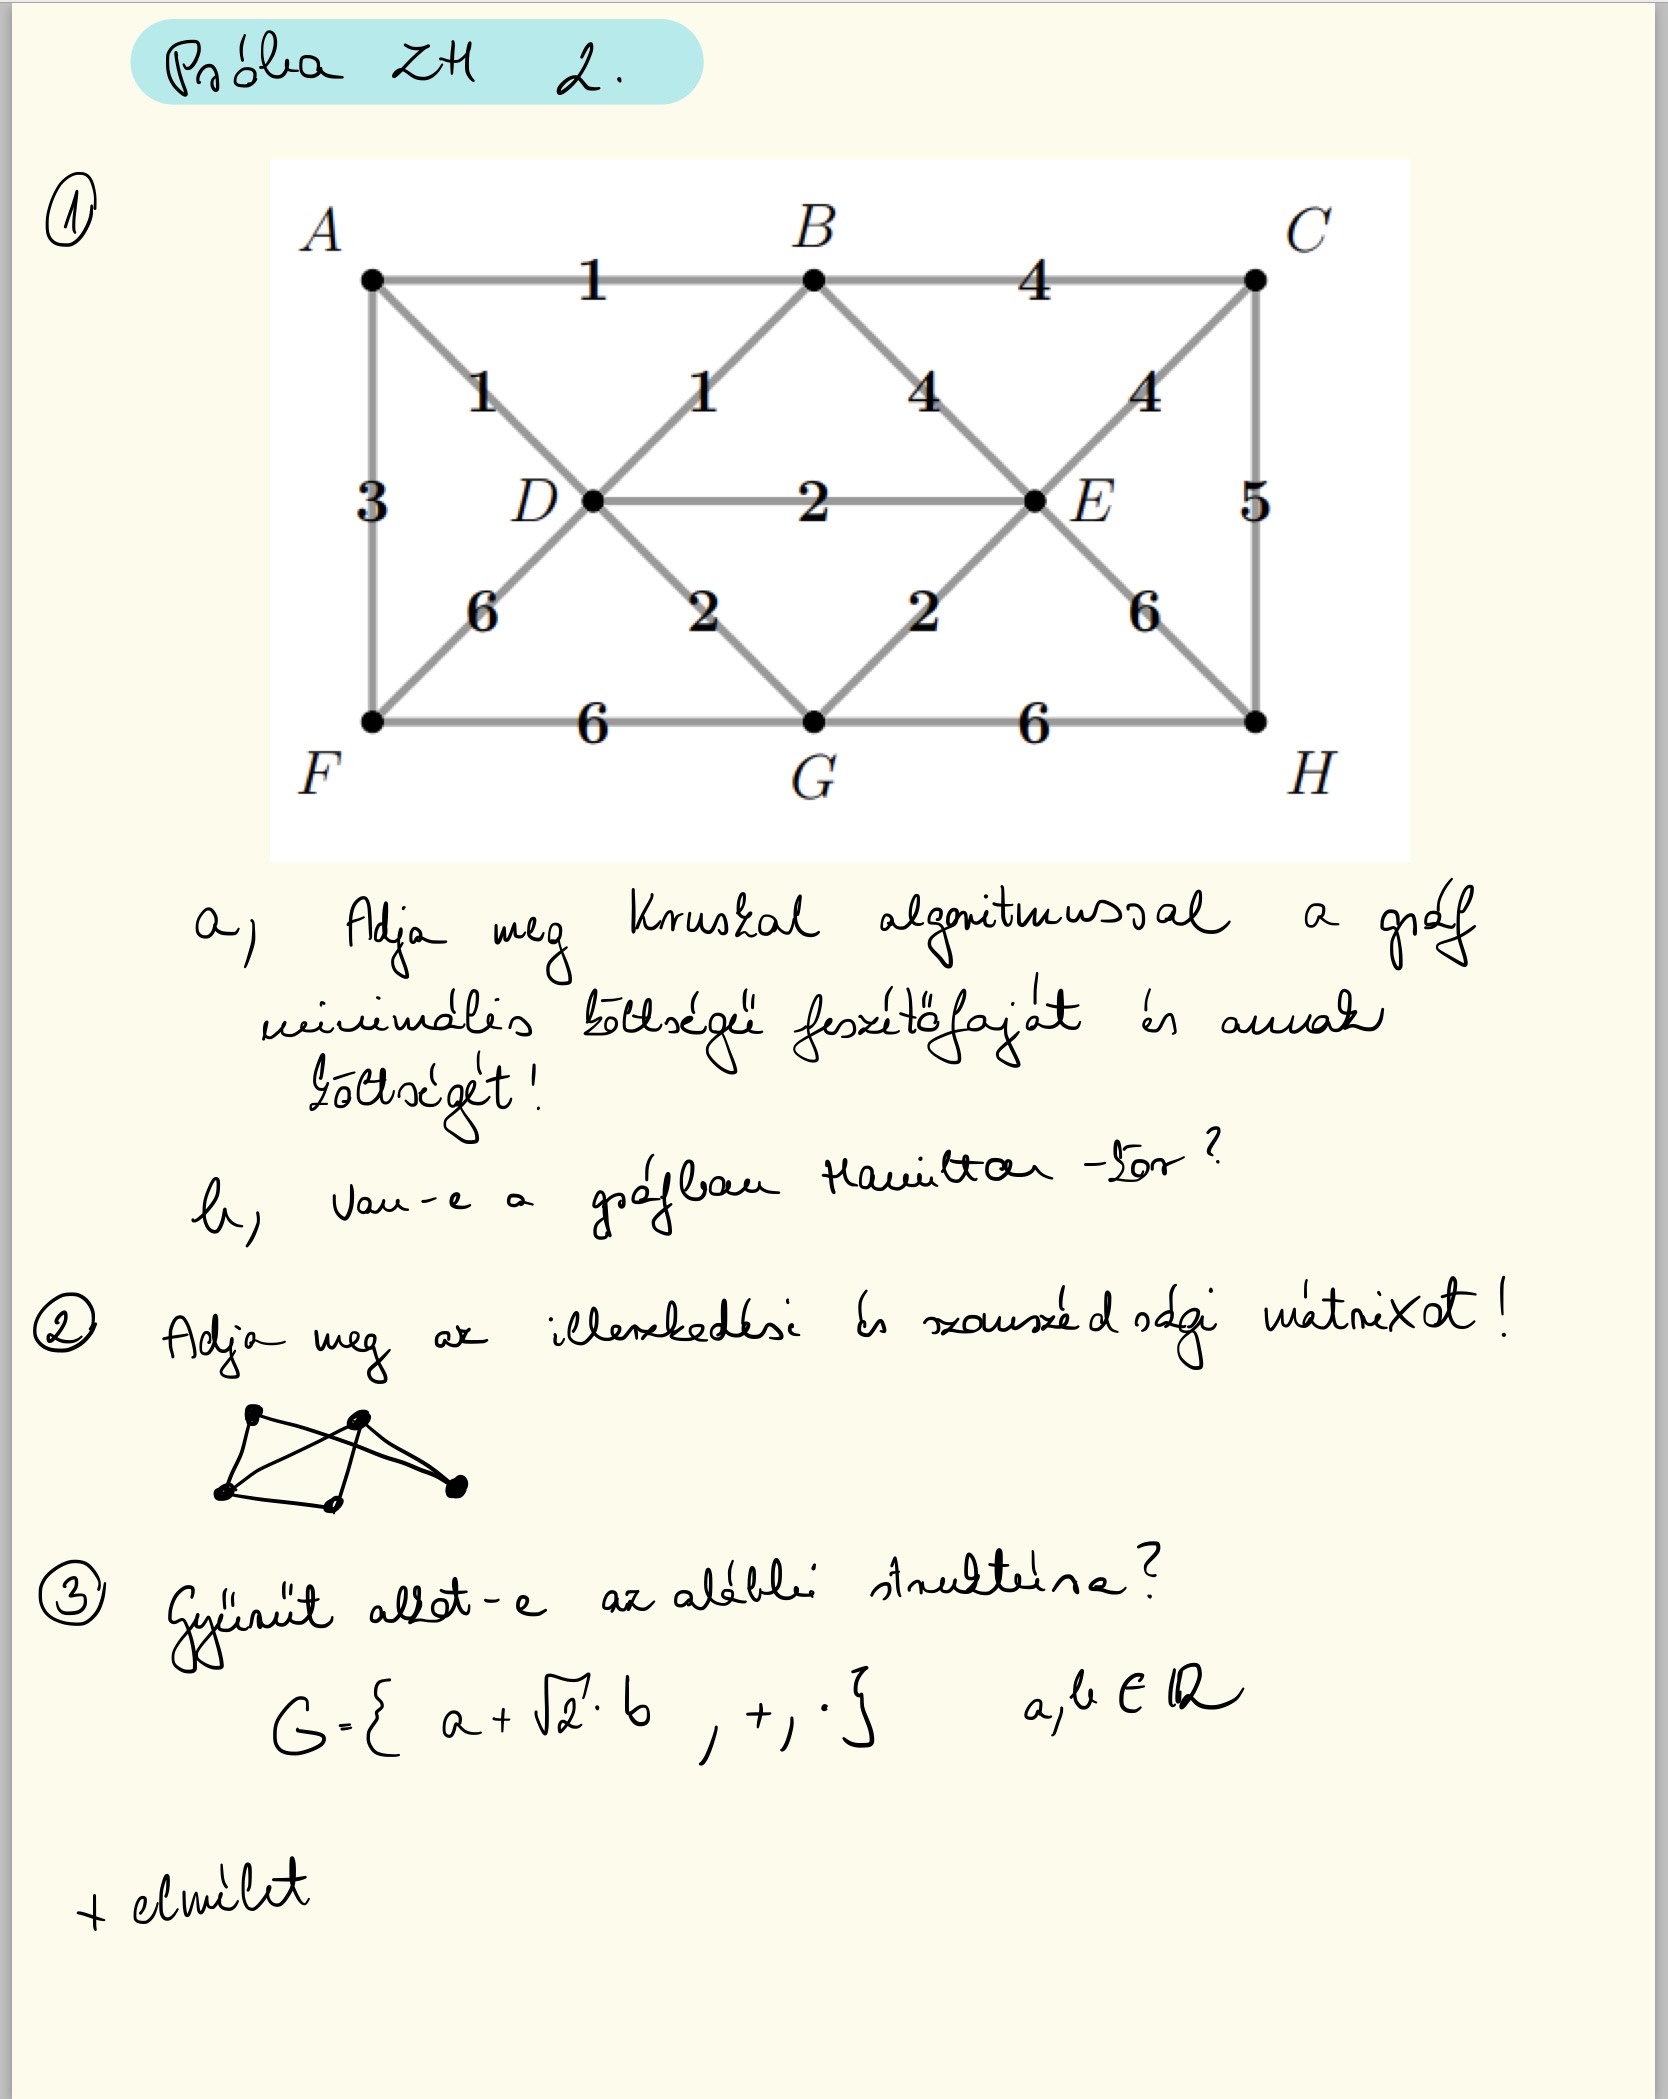 Próba ZH 2.
1
A B C
1 4
1 1 4 4
3 D 2 E 5
6 2 2 6
6 6
F G H
a, Adja meg Kruskal algoritmussal a gráf
minimális költségű feszítőfáját és annak
költségét!
b, Van-e a gráfban Hamilton-kör?
2 Adja meg az illeszkedési és szomszédsági mátrixot!
3 Gyűrűt alkot-e az alábbi struktúra?
G={ a+√2·b , +, ·} a,b ∈ ℝ
+ elmélet